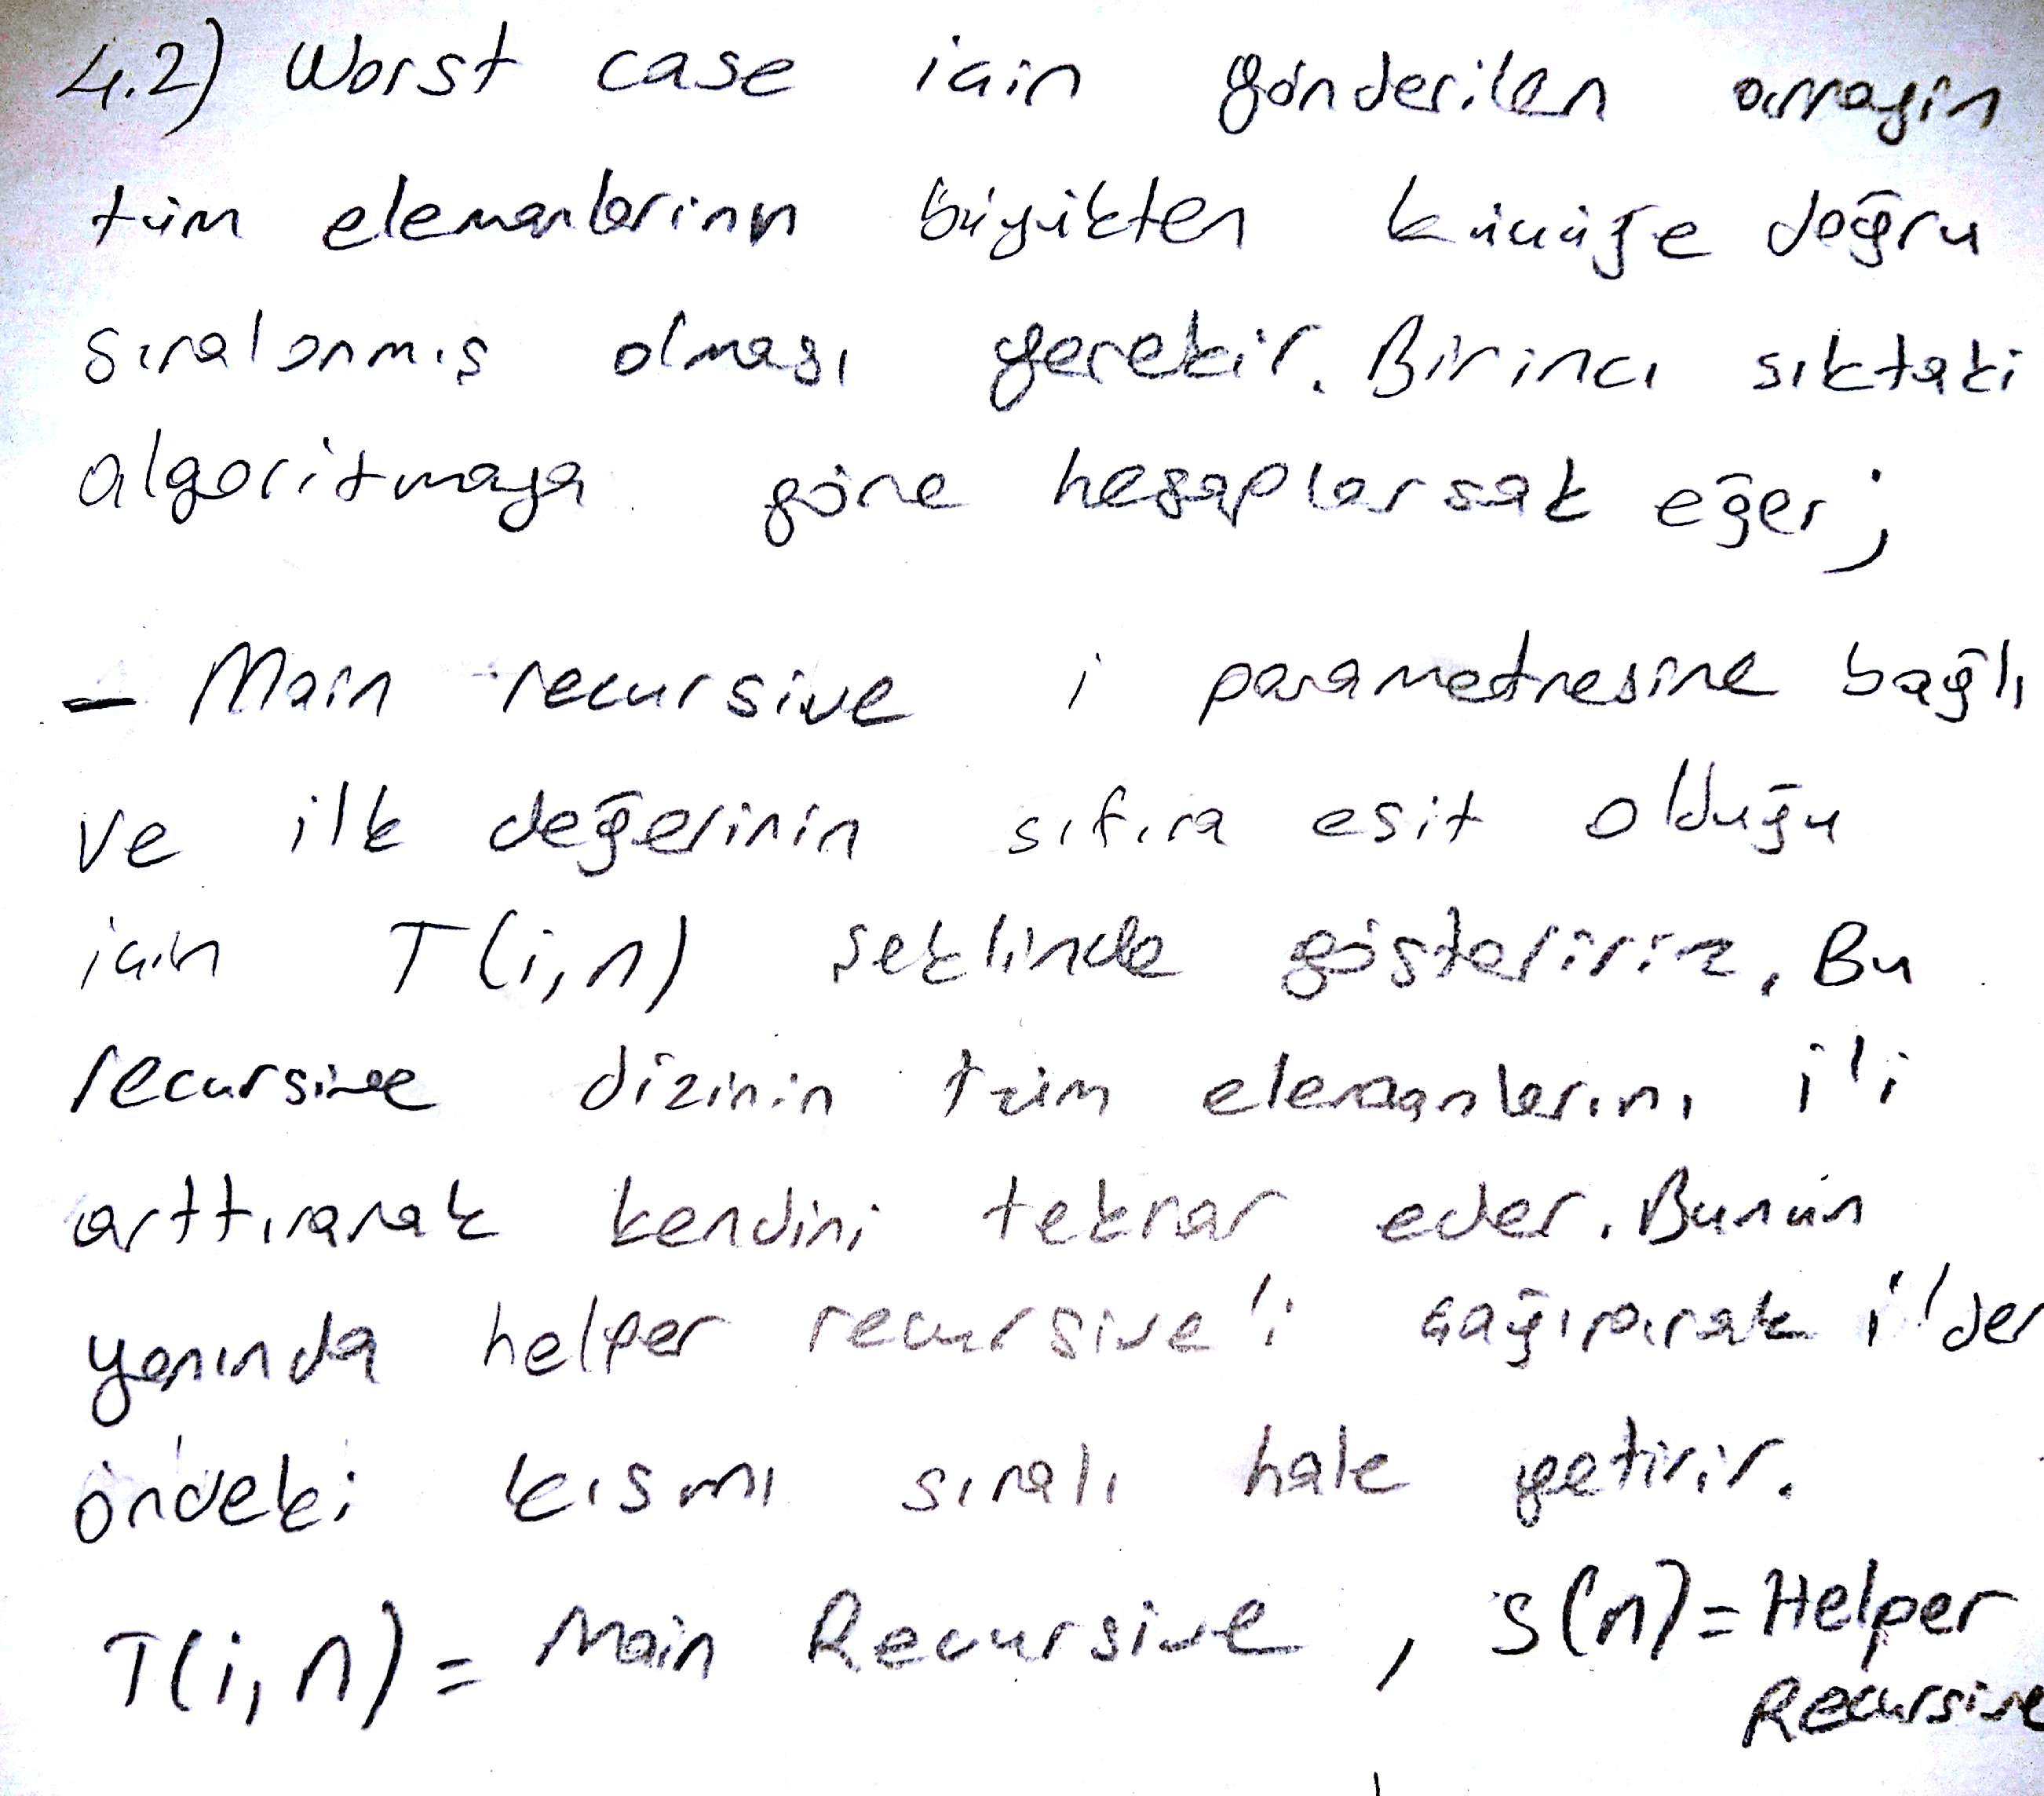 4.2) Worst case için gönderilen arrayin
tüm elemanlarının büyükten küçüğe doğru
sıralanmış olması gerekir. Birinci sıktaki
algoritmaya göre hesaplarsak eğer;
- Main recursive i parametresine bağlı
ve ilk değerinin sıfıra esit olduğu
için T(i,n) şeklinde gösteririz. Bu
recursive dizinin tüm elemanlarını i'i
arttırarak kendini tekrar eder. Bunun
yanında helper recursive'i çağırarak i'den
öndeki kısmı sıralı hale getirir.
T(i,n) = Main Recursive , S(n) = Helper
Recursive